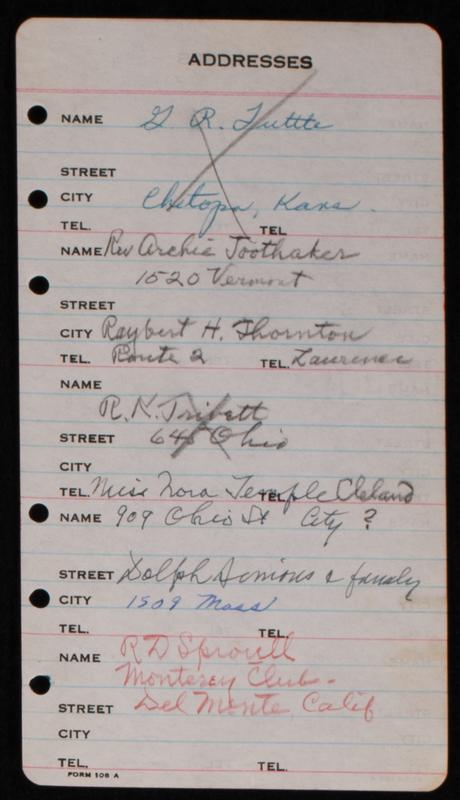 ADDRESSES
NAME G. R. Tuttle
STREET
CITY Chetopa, Kans.
TEL. TEL
NAME Rev Archie Toothaker
1520 Vermont
STREET
CITY Raybert H. Thornton
TEL. Route 2 TEL. Lawrence
NAME
R. N. Tribett
STREET 645 Ohio
CITY
TEL. Miss Nora Temple Cleland TEL.
NAME 909 Ohio St City ?
STREET Dolph Simons & family
CITY 1509 Mass
TEL. TEL.
NAME R D Sproull
Monterey Club -
STREET Del Monte, Calif
CITY
TEL. TEL.
FORM 108 A